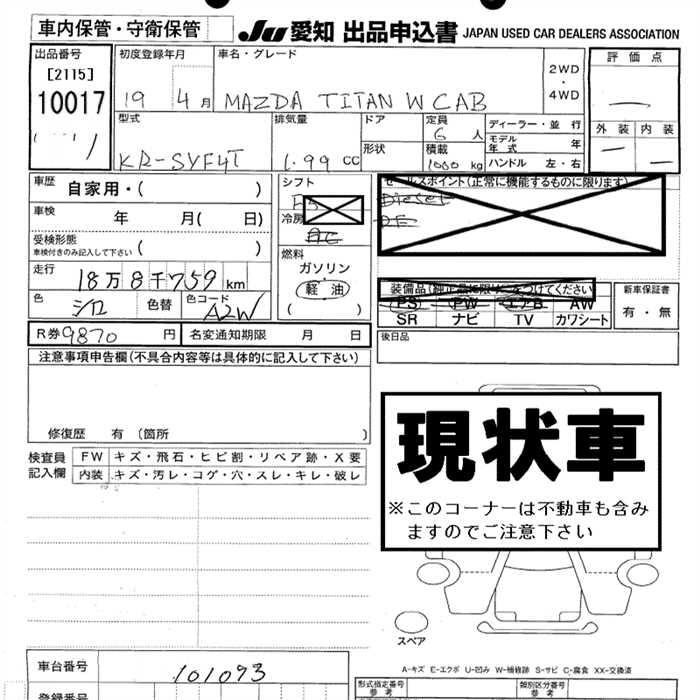 車内保管・守衛保管
JU 愛知 出品申込書 JAPAN USED CAR DEALERS ASSOCIATION
出品番号
[2115]
10017
初度登録年月
19 4 月
車名・グレード
MAZDA TITAN W CAB
2WD
・
4WD
評 価 点
—
外 装 内 装
— —
型式
KR-SYF4T
排気量
1.99 CC
ドア
形状
定員
6 人
積載
1000 kg
ディーラー・並 行
モデル年 式 年
ハンドル 左・右
車歴 自家用・( )
車検 年 月( 日)
受検形態
車検付きのみ記入して下さい ( )
走行 18万8千759 km
色 シロ 色替 色コード A2W
シフト
F5
冷房
AC
燃料
ガソリン・
軽 油
( )
セールスポイント(正常に機能するものに限ります)
Diesel
装備品(純正品に限り○をつけてください)
PS PW エアB AW
SR ナビ TV カワシート
新車保証書
有・無
R券 9870 円 名変通知期限 月 日
後日品
注意事項申告欄(不具合内容等は具体的に記入して下さい)
修復歴 有 (箇所 )
検査員
記入欄
FW キズ・飛石・ヒビ割・リペア跡・X要
内装 キズ・汚レ・コゲ・穴・スレ・キレ・破レ
現状車
※このコーナーは不動車も含み
ますのでご注意下さい
スペア
A-キズ E-エクボ U-凹み W-補修跡 S-サビ C-腐食 XX-交換済
車台番号 101093
登録番号
形式指定番号
参 考
類別区分番号
参 考